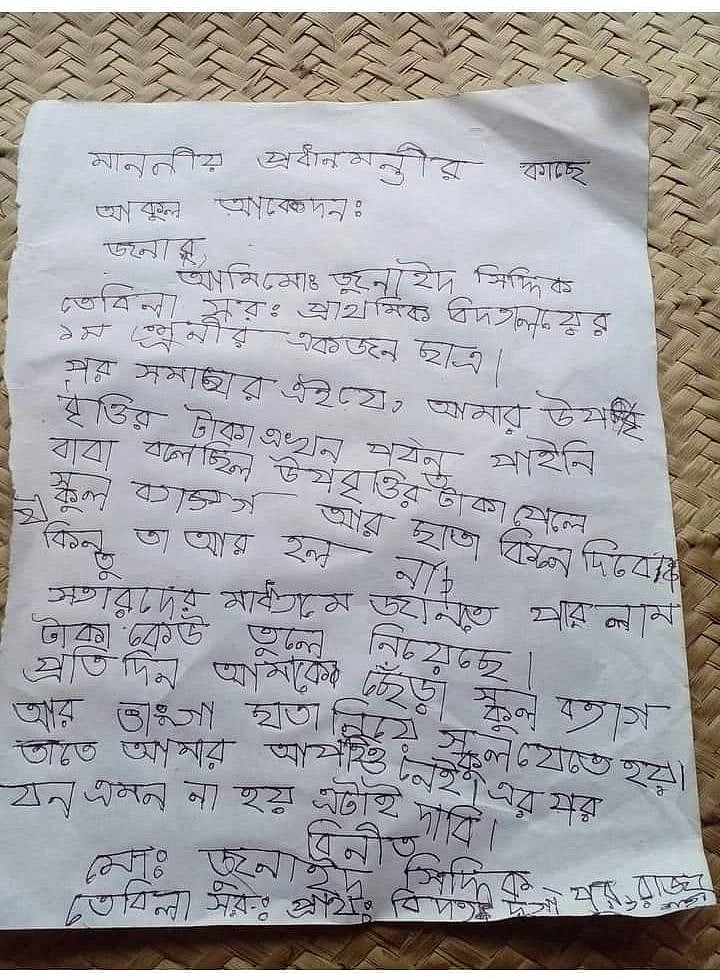 মাননীয় প্রধানমন্ত্রীর কাছে
আকুল আবেদন:
জনাব,
আমি মোঃ জুনাইদ সিদ্দিক
তেবিলা সর: প্রাথমিক বিদ্যালয়ের
১ম শ্রেনীর একজন ছাত্র।
পর সমাচার এইযে, আমার উপ
বৃত্তির টাকা এখন পর্যন্ত পাইনি
বাবা বলেছিল উপবৃত্তির টাকা পেলে
স্কুল ব্যাগ আর ছাতা কিনে দিবে
কিন্তু তা আর হল না।
স্যারদের মাধ্যমে জানতে পারলাম
টাকা কেউ তুলে নিয়েছে।
প্রতি দিন আমাকে ছেঁড়া স্কুল ব্যাগ
আর ভাংগা ছাতা নিয়ে স্কুল যেতে হয়।
তাতে আমার আপত্তি নেই। এর পর
যেন এমন না হয় এটাই দাবি।
বিনীত
মো: জুনাইদ সিদ্দিক
তেবিলা সর: প্রাথ: বিদ্যা: